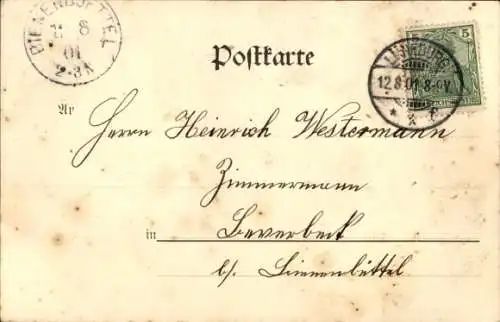 BIENENBÜTTEL
11 8
01
2-3N
Postkarte
5
LÜNEBURG
12.8.01.8-9V.
* c *
An
Herrn Heinrich Westermann
Zimmermann
in Beverbeck
b/. Bienenbüttel